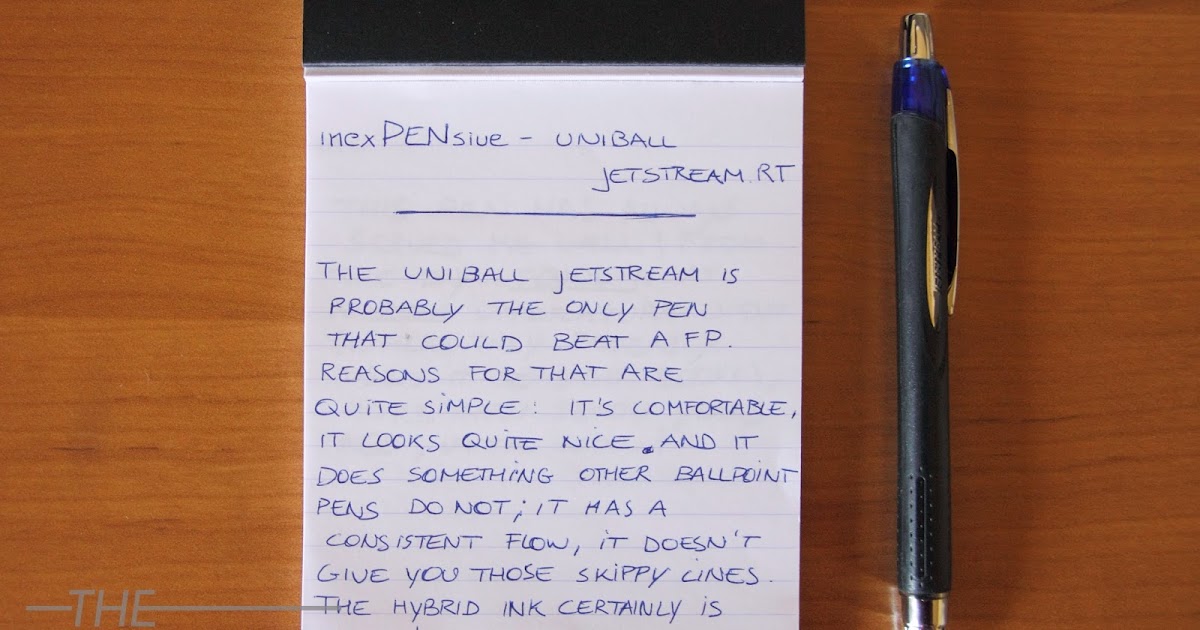 inexPENsive - UNIBALL
JETSTREAM RT
THE UNIBALL JETSTREAM IS
PROBABLY THE ONLY PEN
THAT COULD BEAT A FP.
REASONS FOR THAT ARE
QUITE SIMPLE: IT'S COMFORTABLE,
IT LOOKS QUITE NICE. AND IT
DOES SOMETHING OTHER BALLPOINT
PENS DO NOT; IT HAS A
CONSISTENT FLOW, IT DOESN'T
GIVE YOU THOSE SKIPPY LINES.
THE HYBRID INK CERTAINLY IS
THE